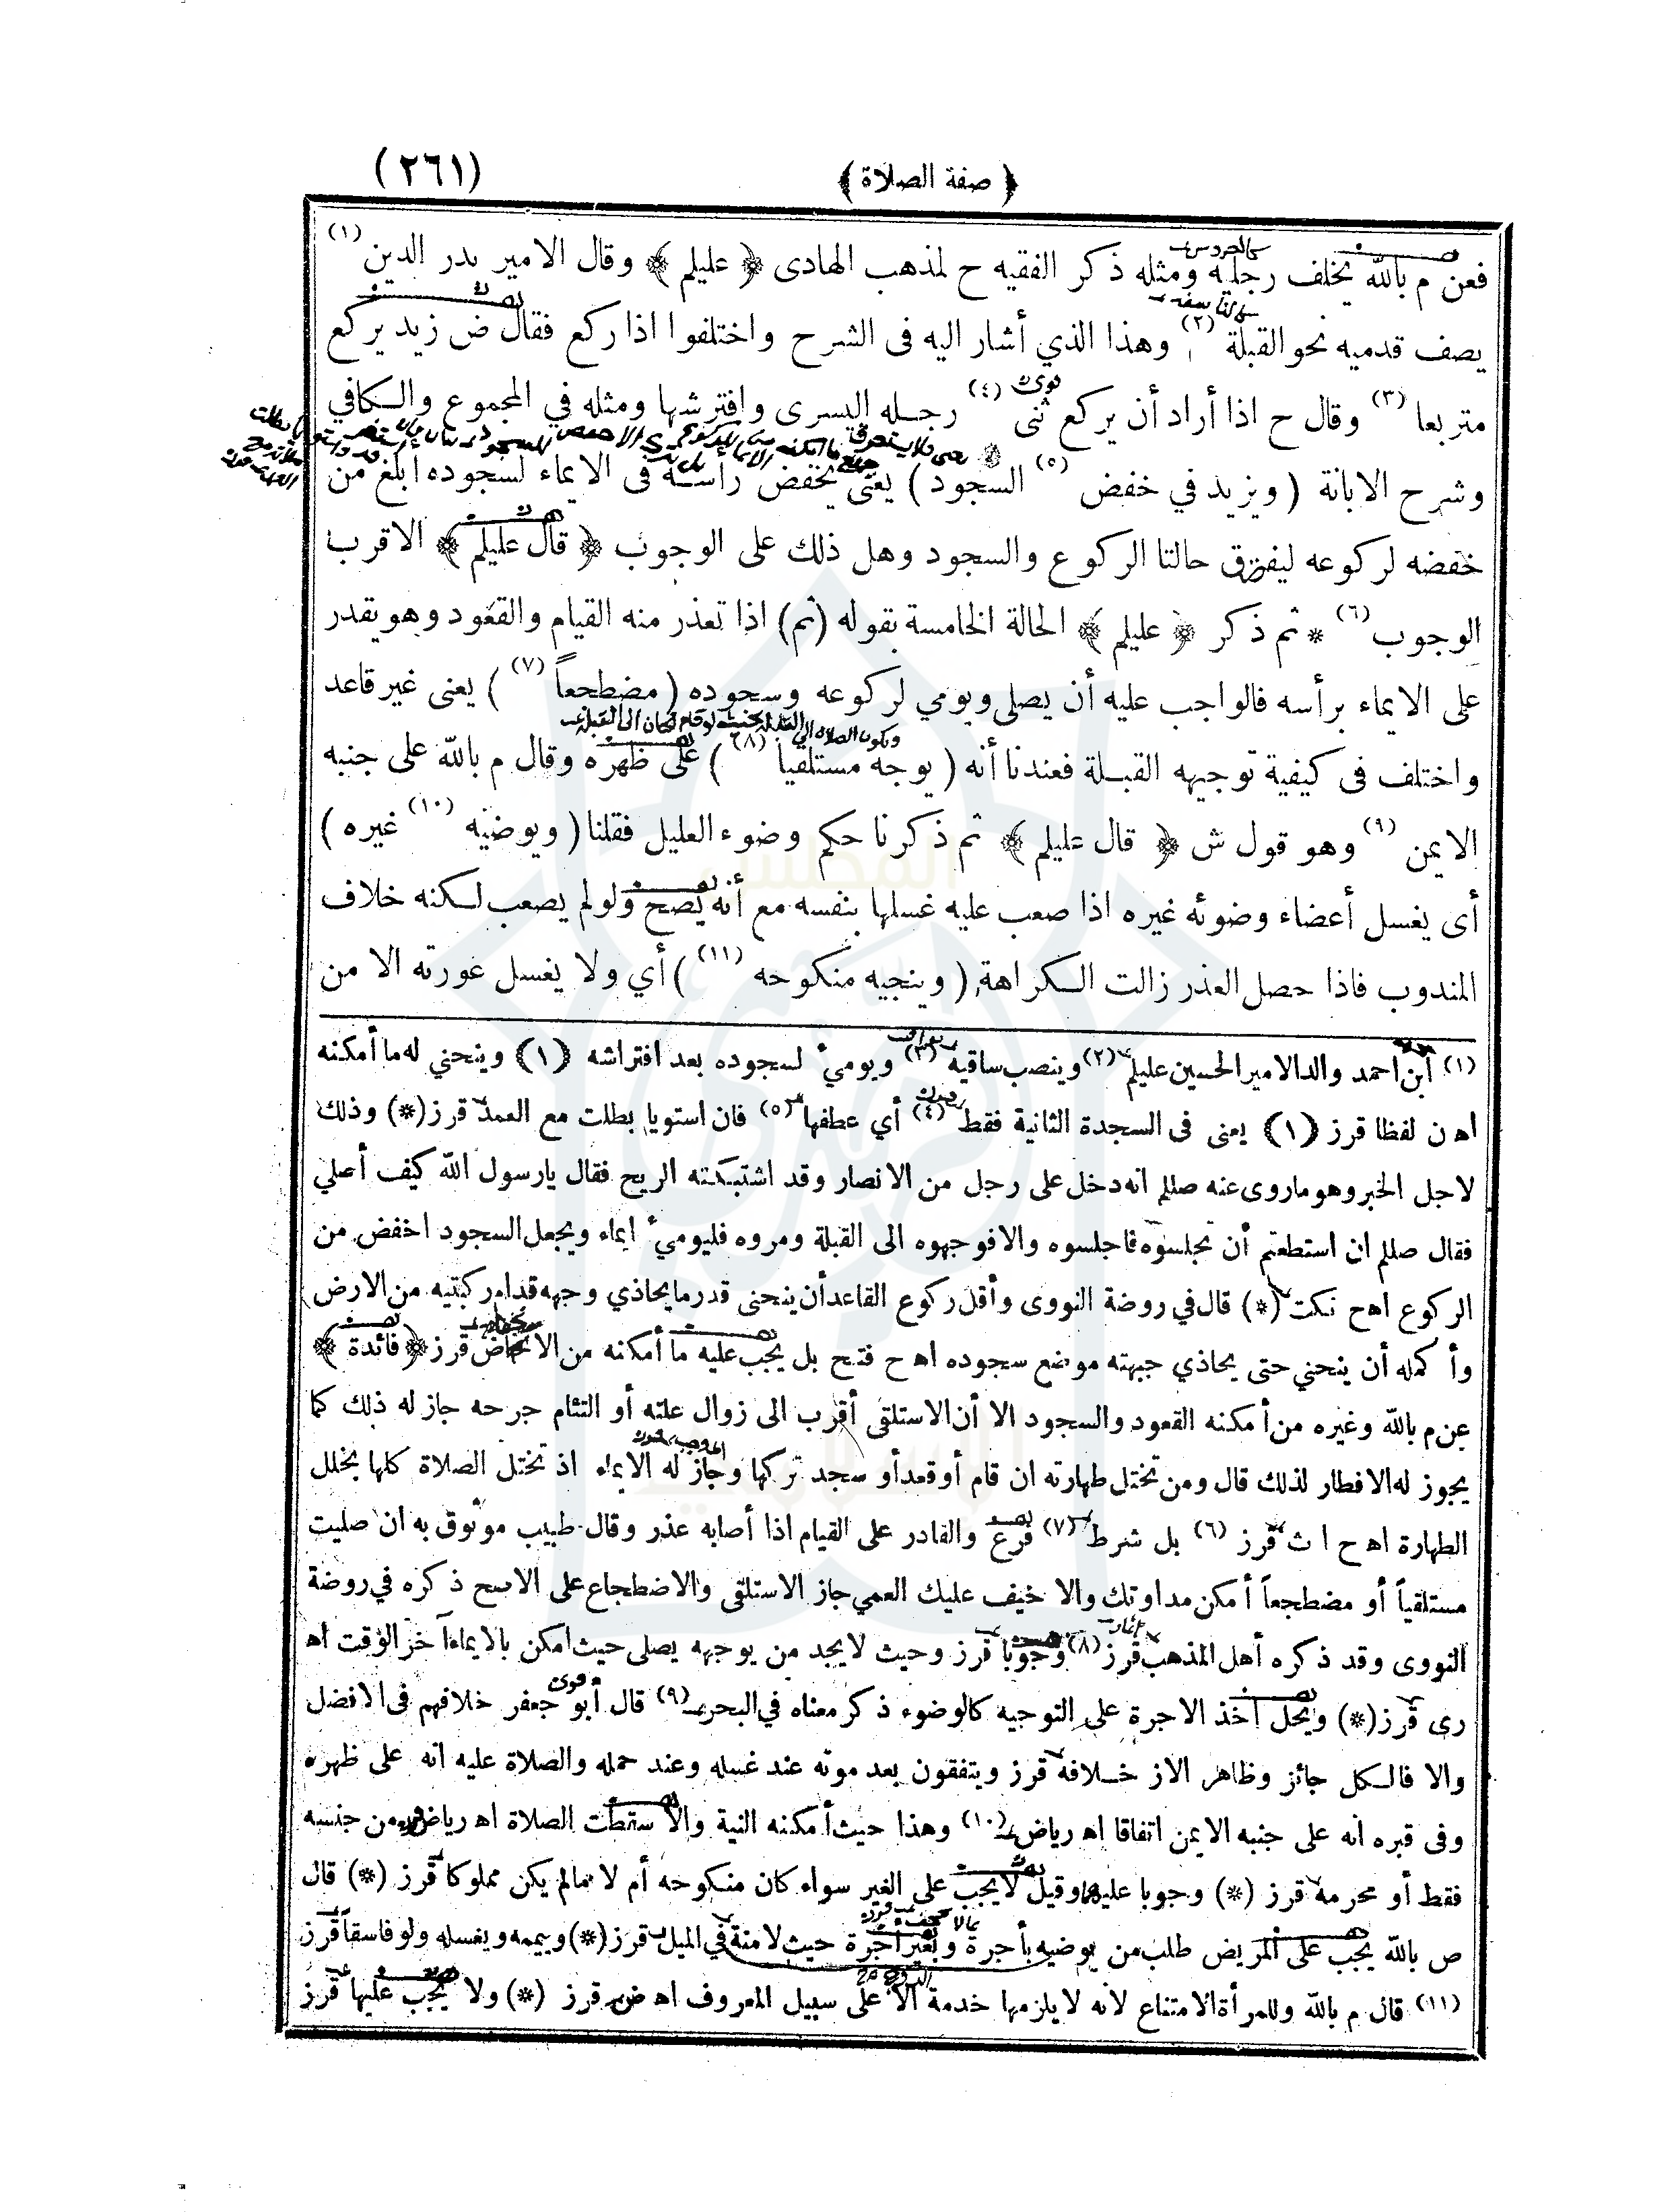 ﴿ صفة الصلاة ﴾
(٢٦١)
فعن م بالله يخلف رجليه ومثله ذكر الفقيه ح لمذهب الهادى ﴿ عليلم ﴾ وقال الامير بدر الدين (١)
يصف قدميه نحو القبلة (٢) وهذا الذي أشار اليه فى الشرح واختلفوا اذا ركع فقال ض زيد يركع
متربعا (٣) وقال ح اذا أراد أن يركع ثنى (٤) رجله اليسرى وافترشها ومثله في المجموع والكافي
وشرح الابانة ( ويزيد في خفض (٥) السجود ) يعنى يخفض رأسه فى الايماء لسجوده أبلغ من
خفضه لركوعه ليفرق حالتا الركوع والسجود وهل ذلك على الوجوب ﴿ قال عليلم ﴾ الاقرب
الوجوب (٦) * ثم ذكر ﴿ عليلم ﴾ الحالة الخامسة بقوله (ثم) اذا تعذر منه القيام والقعود وهو يقدر
على الايماء برأسه فالواجب عليه أن يصلى ويومي لركوعه وسجوده ( مضطجعاً (٧) ) يعنى غير قاعد
واختلف فى كيفية توجيهه القبلة فعندنا أنه ( يوجه مستلقيا (٨) ) على ظهره وقال م بالله على جنبه
الايمن (٩) وهو قول ش ﴿ قال عليلم ﴾ ثم ذكرنا حكم وضوء العليل فقلنا ( ويوضيه (١٠) غيره )
أى يغسل أعضاء وضوئه غيره اذا صعب عليه غسلها بنفسه مع أنه يصح ولو لم يصعب لكنه خلاف
المندوب فاذا حصل العذر زالت الكراهة ( وينجيه منكوحه (١١) ) أي ولا يغسل عورته الا من
(١) ابن احمد والد الامير الحسين عليلم (٢) وينصب ساقيه (٣) ويومئ لسجوده بعد افتراشه (١) وينحني له ما أمكنه
اه ن لفظا قرز (١) يعنى فى السجدة الثانية فقط (٤) أي عطفها (٥) فان استويا بطلت مع العمد قرز (*) وذلك
لاجل الخبر وهو ما روى عنه صللم انه دخل على رجل من الانصار وقد اشتبكته الريح فقال يا رسول الله كيف أصلي
فقال صللم ان استطعتم أن تجلسوه فاجلسوه والا فوجهوه الى القبلة ومروه فليومئ ايماء ويجعل السجود اخفض من
الركوع اه ح نكت (*) قال في روضة النووى وأقل ركوع القاعد أن ينحنى قدر ما يحاذي وجهه قدام ركبتيه من الارض
وأكمله أن ينحني حتى يحاذي جبهته موضع سجوده اه ح فتح بل يجب عليه ما أمكنه من الانخفاض قرز ﴿ فائدة ﴾
عن م بالله وغيره من أمكنه القعود والسجود الا أن الاستلقى أقرب الى زوال علته أو التئام جرحه جاز له ذلك كما
يجوز له الافطار لذلك قال ومن تختل طهارته ان قام أو قعد أو سجد تركها وجاز له الايماء اذ تختل الصلاة كلها بخلل
الطهارة اه ح ا ث قرز (٦) بل شرط (٧) فرع والقادر على القيام اذا أصابه عذر وقال طبيب موثوق به ان صليت
مستلقياً أو مضطجعاً أمكن مداوتك والا خيف عليك العمي جاز الاستلقى والاضطجاع على الاصح ذكره في روضة
النووى وقد ذكره أهل المذهب قرز (٨) وجوبا قرز وحيث لا يجد من يوجهه يصلى حيث امكن بالايماء آخر الوقت اه
رى قرز (*) ويحل اخذ الاجرة على التوجيه كالوضوء ذكر معناه في البحر (٩) قال أبو جعفر خلافهم فى الافضل
والا فالكل جائز وظاهر الاز خلافه قرز ويتفقون بعد موته عند غسله وعند حمله والصلاة عليه انه على ظهره
وفى قبره انه على جنبه الايمن اتفاقا اه رياض (١٠) وهذا حيث أمكنته النية والا سقطت الصلاة اه رياض من جنسه
فقط أو محرمه قرز (*) وجوبا عليهما وقيل لا يجب على الغير سواء كان منكوحه أم لا مالم يكن مملوكا قرز (*) قال
ص بالله يجب على المريض طلب من يوضيه بأجرة وبغير اجرة حيث لا منة في الميل قرز (*) وييممه ويغسله ولو فاسقاً قرز
(١١) قال م بالله وللمرأة الامتناع لانه لا يلزمها خدمة الا على سبيل المعروف اه قرز (*) ولا يجب عليها قرز